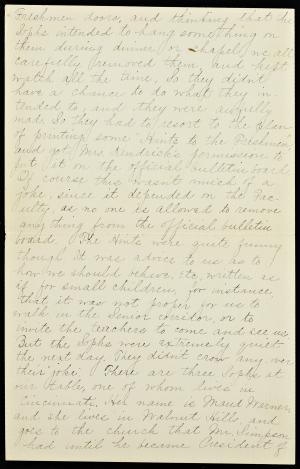 Freshmen doors, and thinking that the
Sophs intended to hang something on
them during dinner or chapel, we all
carefully removed them, and kept
watch all the time, so they didn't
have a chance to do what they in-
tended to, and they were awfully
mad. So they had to resort to the plan
of printing some "Hints to the Freshmen,"
and got Mrs. Kendrick's permission to
put it on the official bulletin board.
Of course this wasn't much of a
joke, since it depended on the Fac-
ulty, as no one is allowed to remove
anything from the official bulletin
board. The Hints were quite funny
though. It was advice to us as to
how we should behave, etc, written as
if for small children, for instance,
that it was not proper for us to
walk in the Senior corridor, or to
invite the teachers to come and see us.
But the Sophs were extremely quiet
the next day. They didn't crow any over
their joke. There are three Sophs at
our table, one of whom lives in
Cincinnati. Her name is Maud Warner,
and she lives in Walnut Hills, and
goes to the church that Mr. Simpson
had until he became President of